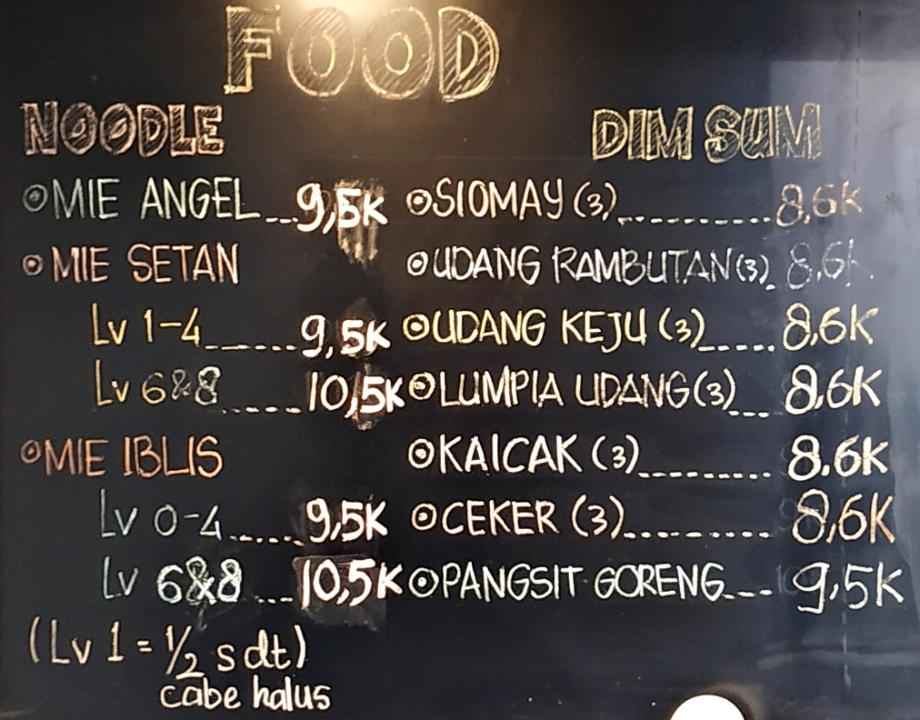 FOOD
NOODLE
⦿MIE ANGEL...9,5K
⦿MIE SETAN
Lv 1-4......9,5K
Lv 6&8.....10,5K
⦿MIE IBLIS
Lv 0-4.....9,5K
Lv 6&8...10,5K
(Lv 1 = 1/2 sdt)
cabe halus
DIM SUM
⦿SIOMAY (3)..........8,6K
⦿UDANG RAMBUTAN(3). 8,6K
⦿UDANG KEJU (3).....8,6K
⦿LUMPIA UDANG(3)...8,6K
⦿KAICAK (3).........8.6K
⦿CEKER (3)..........8,6K
⦿PANGSIT GORENG...9,5K